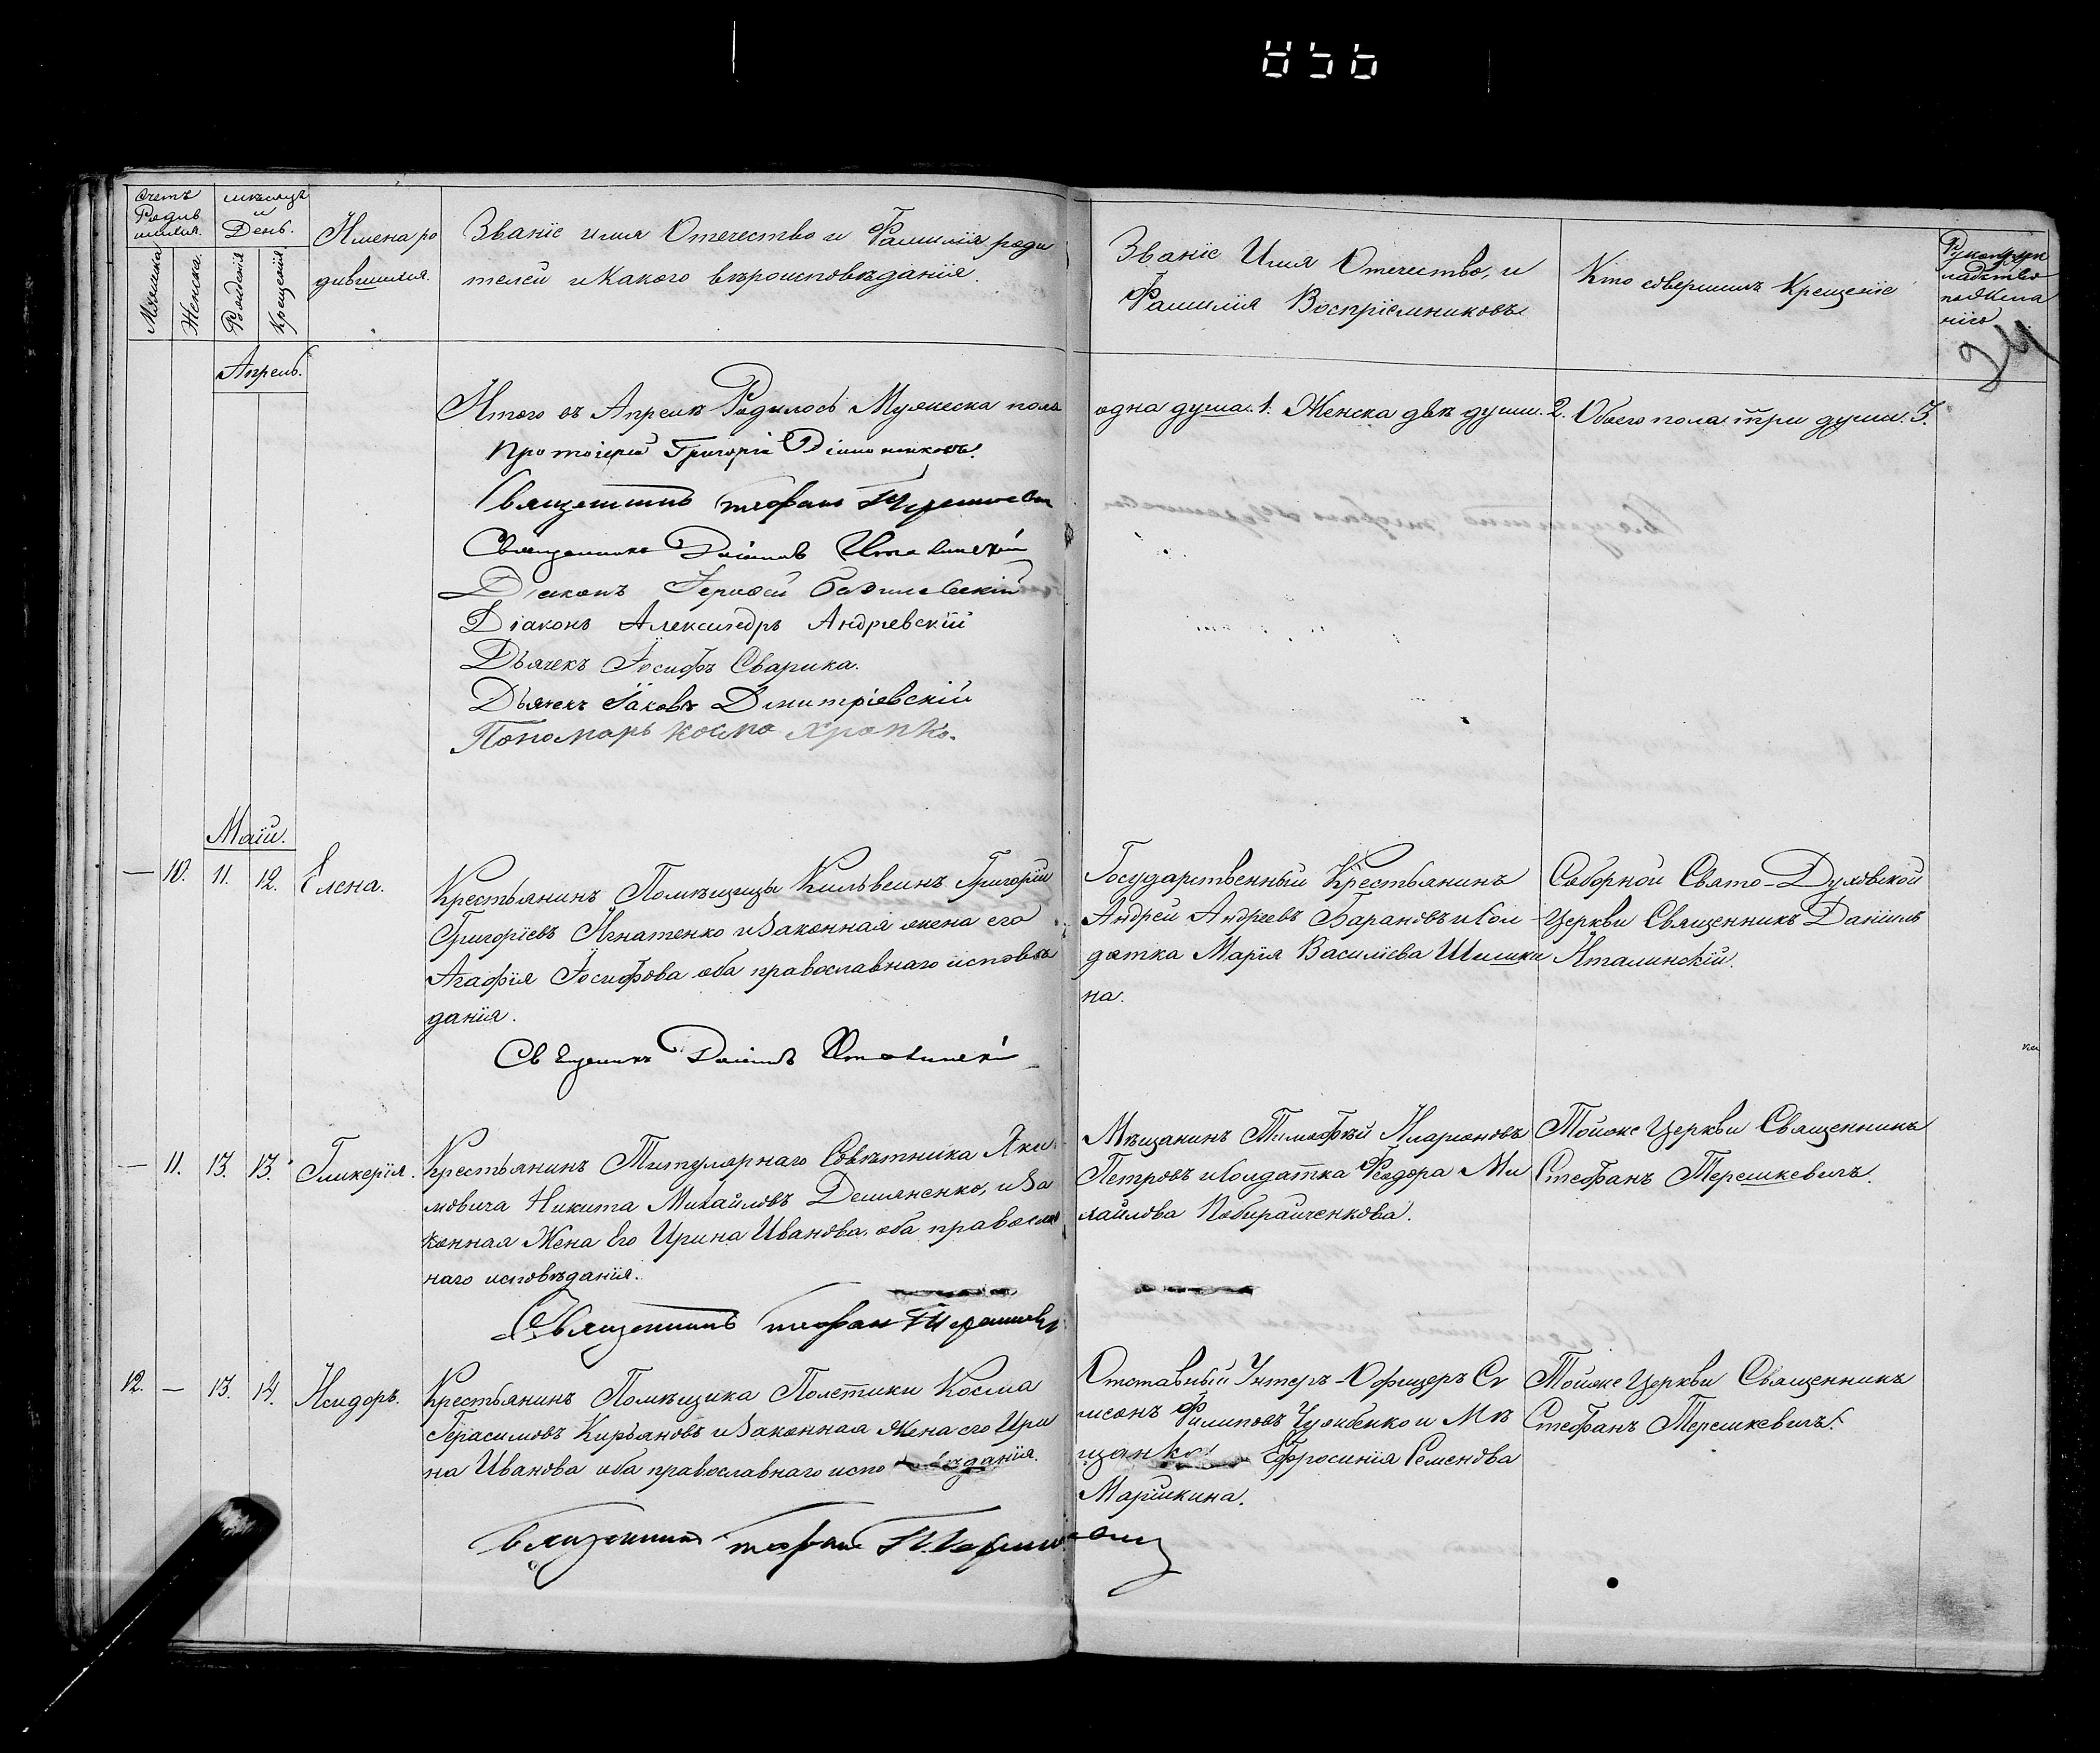 856
Счетъ Родив шихся.
мѣсяцъ и День.
Мужеска
Женска.
Рожденія
Крещенія
Имена ро
дившихся.
Званіе имя Отечество и Фамилія роди
телей и Какого вѣроисповѣданія.
Званіе Имя Отечество, и
Фамилія Воспріемниковъ
Кто совершилъ Крещеніе
24
Апрель.
Итого въ Апрелѣ Родилось Мужеска пола одна душа. 1. Женска двѣ души. 2. Обоего пола три души. 3.
Протоіерей Григорій
Священникъ Стефанъ Терешкевич
Священникъ Даніилъ Италинскій
Діаконъ Іерофей Базилевскій
Діаконъ Александръ Андріевскій
Дьячекъ Іосифъ Сварика.
Дьячекъ Іаковъ Дмитріевскій
Пономарь Косма Хропко.
Маій.
— 10. 11. 12. Елена.
Крестьянинъ Помѣщицы Кильвеинъ Григорій
Григоріевъ Игнатенко и Законная жена его
Агафія Іосифова оба православнаго исповѣ
данія.
Священникъ Даніилъ Италинскій
Государственный Крестьянинъ
Андрей Андреевъ Барановъ и Сол
датка Марія Василіева Шишки
на.
Соборной Свято-Духовской
Церкви Священникъ Даніилъ
Италинскій.
— 11. 13. 13. Гликерія.
Крестьянинъ Титулярнаго Совѣтника Яки
мовича Никита Михайловъ Демяненко, и За
конная Жена Его Ирина Иванова, оба православ
наго исповѣданія.
Священникъ Стефанъ Терешкевич
Мѣщанинъ Тимофѣй Иларіоновъ
Петровъ и Солдатка Феодора Ми
хайлова Побирайченкова.
Тойже Церкви Священникъ
Стефанъ Терешкевичъ.
12. — 13. 14. Исидоръ.
Крестьянинъ Помѣщика Полетики Косма
Герасимовъ Кирьяновъ и Законная Жена его Ири
на Иванова оба православнаго исповѣданія.
Священникъ Стефанъ Терешкевич
Отставный Унтеръ-Офицеръ Си
мсонъ Филиповъ и Мѣ
щанка Ефросинія Семенова
Маришкина.
Тойже Церкви Священникъ
Стефанъ Терешкевичъ.